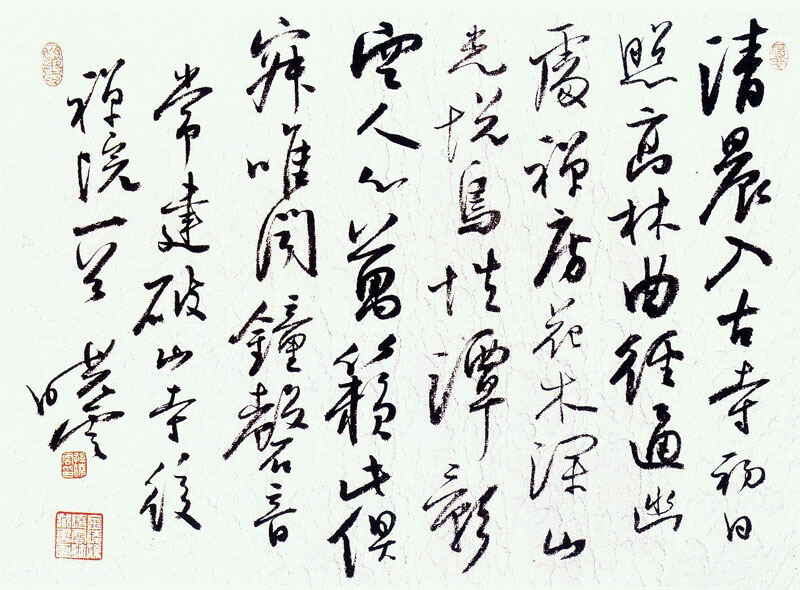 清晨入古寺初日
照高林曲徑通幽
處禪房花木深山
光悅鳥性潭影
空人心萬籟此俱
寂唯聞鐘磬音
常建破山寺後
禪院一首
曉雲